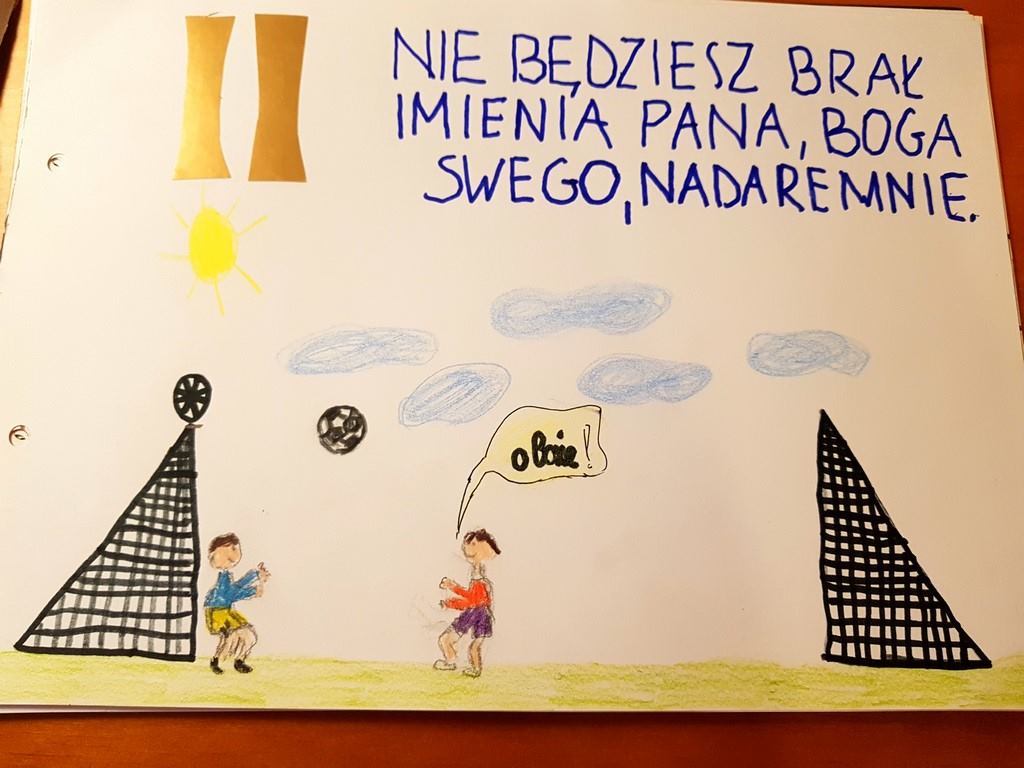 II
NIE BĘDZIESZ BRAŁ
IMIENIA PANA, BOGA
SWEGO, NADAREMNIE.
o Boże!